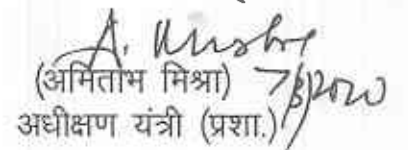 A. Mishra
(अमिताभ मिश्रा)
अधीक्षण यंत्री (प्रशा.)